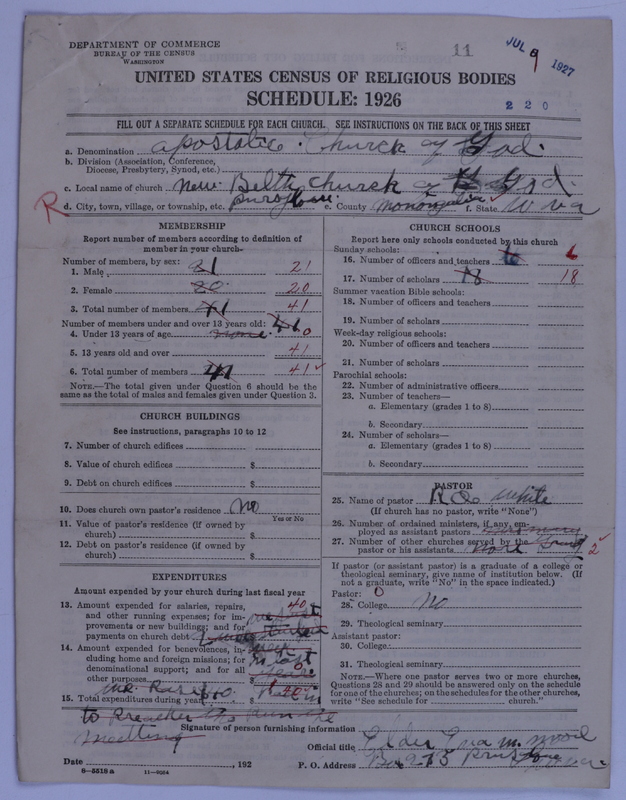 DEPARTMENT OF COMMERCE
BUREAU OF THE CENSUS
WASHINGTON
11
JUL 9 1927
220
UNITED STATES CENSUS OF RELIGIOUS BODIES
SCHEDULE: 1926
FILL OUT A SEPARATE SCHEDULE FOR EACH CHURCH. SEE INSTRUCTIONS ON THE BACK OF THIS SHEET
a. Denomination apostolic Church of God.
b. Division (Association, Conference,
Diocese, Presbytery, Synod, etc.)
c. Local name of church new Beth church of God.
R
d. City, town, village, or township, etc. e. County monongalia f. State W va
MEMBERSHIP
Report number of members according to definition of
member in your church
Number of members, by sex:
1. Male 21 21
2. Female 20 20
3. Total number of members 41 41
Number of members under and over 13 years old: 41
4. Under 13 years of age none 0
5. 13 years old and over 41
6. Total number of members 41 41 ✓
NOTE.—The total given under Question 6 should be
same as the total of males and females given under Question 3.
CHURCH BUILDINGS
See instructions, paragraphs 10 to 12
7. Number of church edifices
8. Value of church edifices $
9. Debt on church edifices $
10. Does church own pastor's residence? No
Yes or No
11. Value of pastor's residence (if owned by
church) $
12. Debt on pastor's residence (if owned by
church) $
EXPENDITURES
Amount expended by your church during last fiscal year
13. Amount expended for salaries, repairs,
and other running expenses; for im-
provements or new buildings; and for
payments on church debt 40
14. Amount expended for benevolences, in-
cluding home and foreign missions; for
denominational support; and for all
other purposes 0
15. Total expenditures during year $ 40
to Preacher
meetting
CHURCH SCHOOLS
Report here only schools conducted by this church
Sunday schools:
16. Number of officers and teachers 6 6
17. Number of scholars 18 18
Summer vacation Bible schools:
18. Number of officers and teachers
19. Number of scholars
Week-day religious schools:
20. Number of officers and teachers
21. Number of scholars
Parochial schools:
22. Number of administrative officers
23. Number of teachers—
a. Elementary (grades 1 to 8)
b. Secondary
24. Number of scholars—
a. Elementary (grades 1 to 8)
b. Secondary
PASTOR
25. Name of pastor white
(If church has no pastor, write "None")
26. Number of ordained ministers, if any, em-
ployed as assistant pastors
27. Number of other churches served by the
pastor or his assistants none 2 ✓
If pastor (or assistant pastor) is a graduate of a college or
theological seminary, give name of institution below. (If
not a graduate, write "No" in the space indicated.)
Pastor: 0
28. College No
29. Theological seminary
Assistant pastor:
30. College
31. Theological seminary
NOTE.—Where one pastor serves two or more churches,
Questions 28 and 29 should be answered only on the schedule
for one of the churches; on the schedules for the other churches,
write "See schedule for church."
Signature of person furnishing information
Official title Elder
Date , 192
P. O. Address Box 275
8-5518a 11-9054